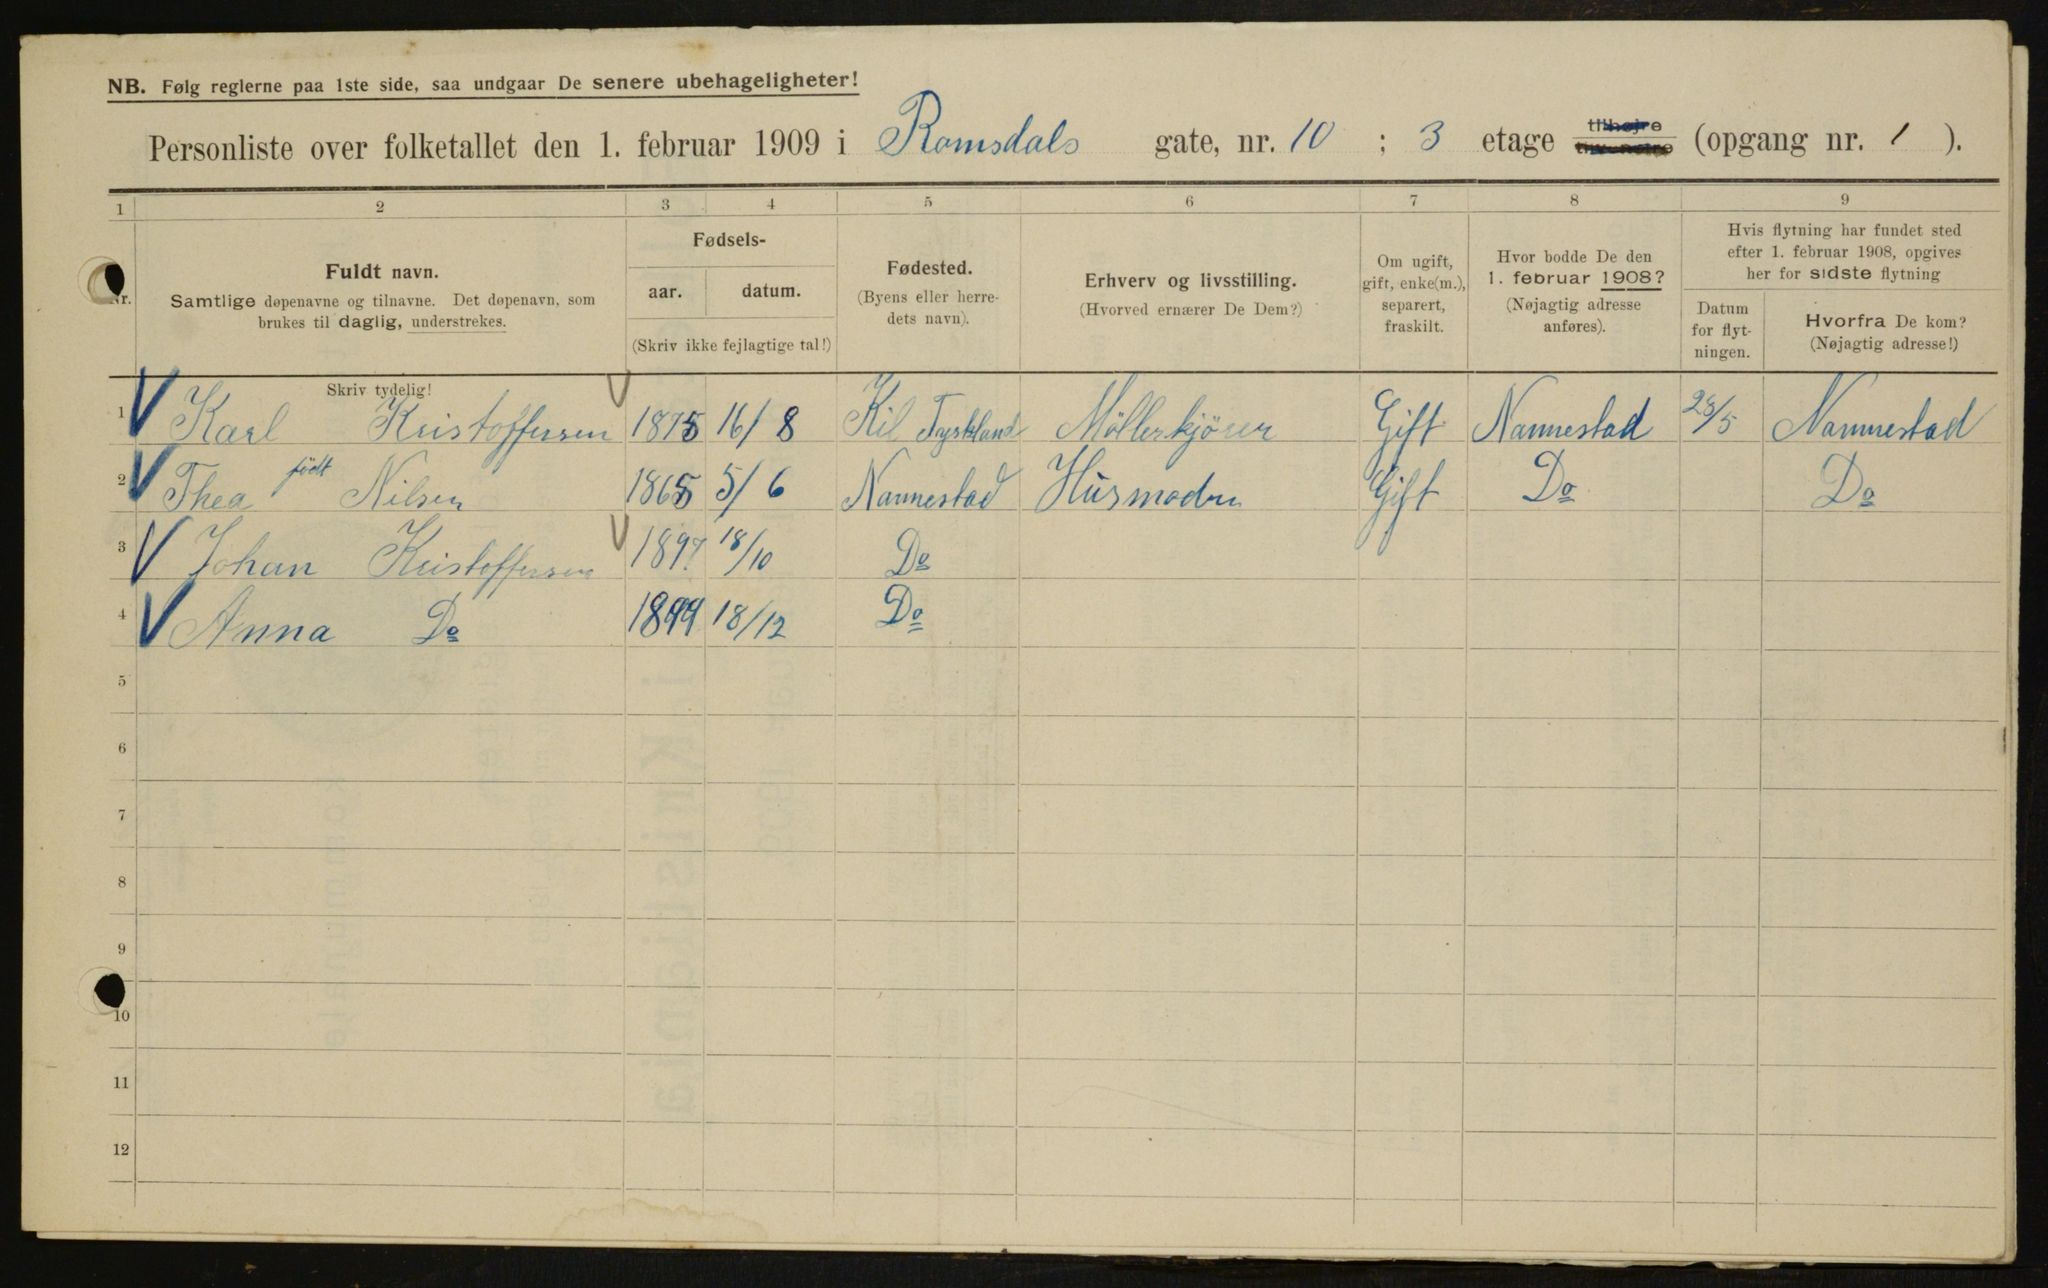 NB. Følg reglerne paa 1ste side, saa undgaar De senere ubehageligheter!
Personliste over folketallet den 1. februar 1909 i Romsdals gate, nr. 10 ; 3 etage tilhøjre (opgang nr. 1 ).
1 2 3 4 5 6 7 8 9
Nr.
Fuldt navn.
Samtlige døpenavne og tilnavne. Det døpenavn, som
brukes til daglig, understrekes.
Skriv tydelig!
Fødsels-
aar. datum.
(Skriv ikke fejlagtige tal!)
Fødested.
(Byens eller herre-
dets navn).
Erhverv og livsstilling.
(Hvorved ernærer De Dem?)
Om ugift,
gift, enke(m.),
separert,
fraskilt.
Hvor bodde De den
1. februar 1908?
(Nøjagtig adresse
anføres).
Hvis flytning har fundet sted
efter 1. februar 1908, opgives
her for sidste flytning
Datum
for flyt-
ningen.
Hvorfra De kom?
(Nøjagtig adresse!)
1 Karl Kristoffersen 1875 16/8 Kil Tyskland Möllerkjörer Gift Nannestad 28/5 Nannestad
2 Thea født Nilsen 1865 5/6 Nannestad Husmoder Gift Do Do
3 Johan Kristoffersen 1897 18/10 Do
4 Anna Do 1899 18/12 Do
5
6
7
8
9
10
11
12